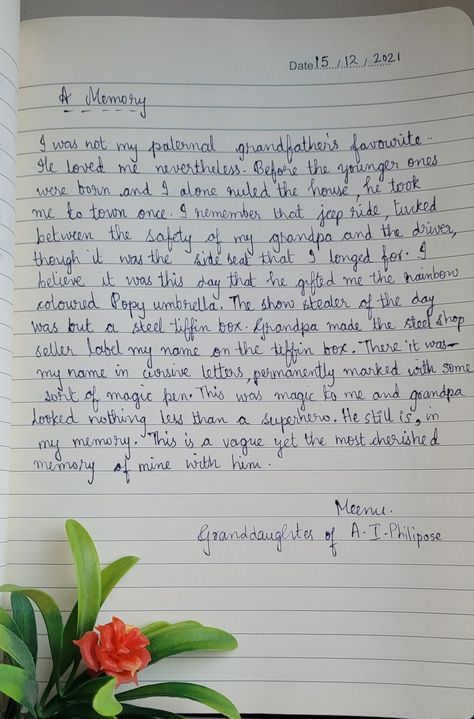 Date 15 / 12 / 2021
A Memory
I was not my paternal grandfather's favourite..
He loved me nevertheless. Before the younger ones
were born and I alone ruled the house, he took
me to town once. I remember that jeep ride, tucked
between the safety of my grandpa and the driver,
though it was the side seat that I longed for. I
believe it was this day that he gifted me the rainbow
coloured Popy umbrella. The show stealer of the day
was but a steel tiffin box. Grandpa made the steel shop
seller label my name on the tiffin box. There it was-
my name in cursive letters, permanently marked with some
sort of magic pen. This was magic to me and grandpa
looked nothing less than a superhero. He still is, in
my memory. This is a vague yet the most cherished
memory of mine with him.
Meenu.
Granddaughter of A.I-Philipose